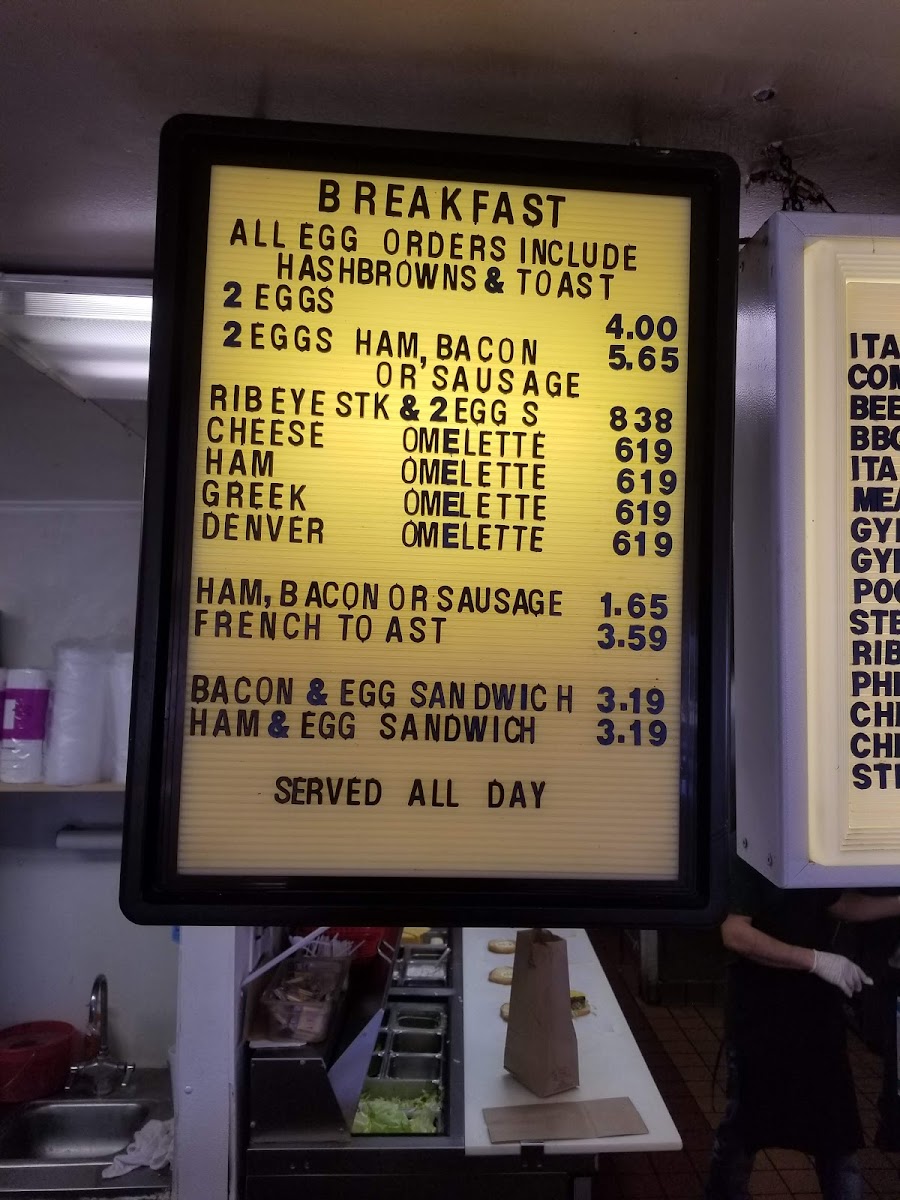 BREAKFAST
ALL EGG ORDERS INCLUDE
HASHBROWNS & TOAST
2 EGGS 4.00
2 EGGS HAM, BACON 5.65
OR SAUSAGE
RIBEYE STK & 2 EGGS 838
CHEESE OMELETTE 619
HAM OMELETTE 619
GREEK OMELETTE 619
DENVER OMELETTE 619
HAM, BACON OR SAUSAGE 1.65
FRENCH TOAST 3.59
BACON & EGG SANDWICH 3.19
HAM & EGG SANDWICH 3.19
SERVED ALL DAY
ITA
COM
BEE
BBQ
ITA
MEA
GY
GY
POO
STE
RIB
PHI
CHI
CHI
STE